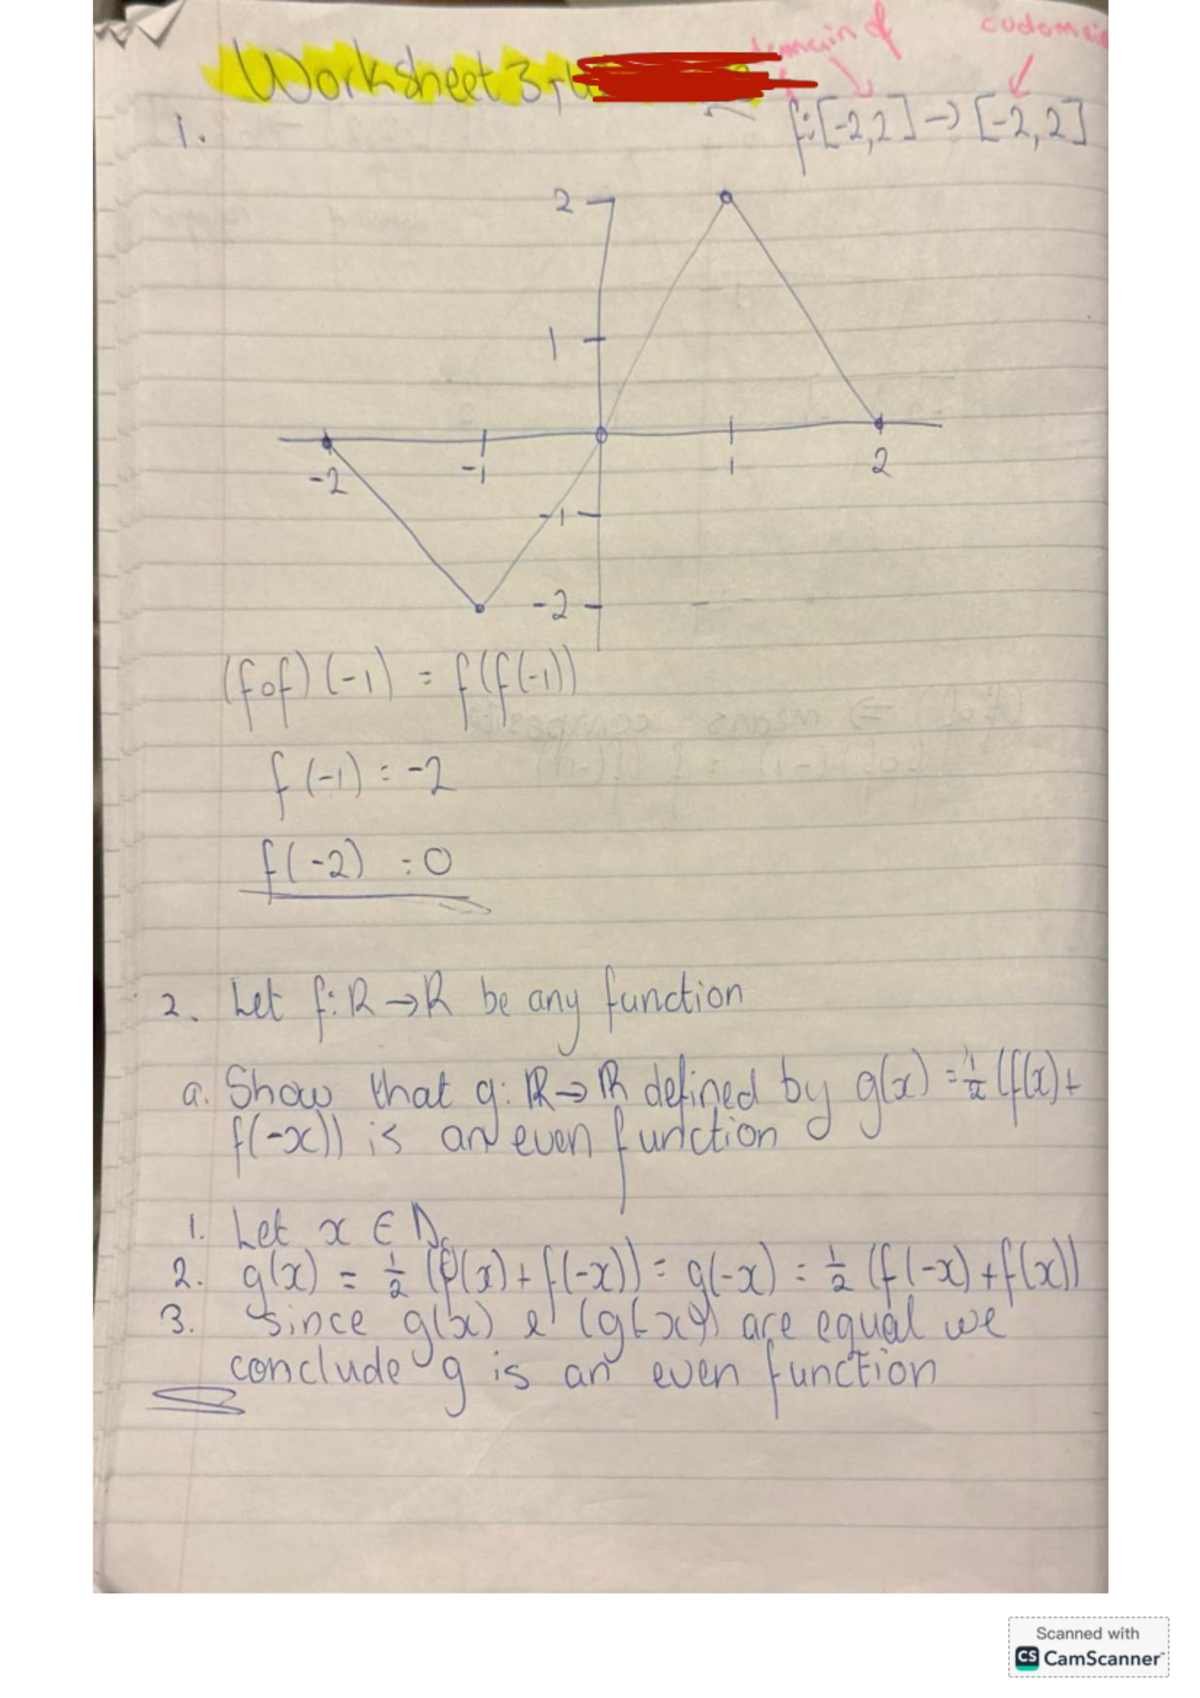 domain of codomain
Worksheet 3
f:[-2,2]→[-2,2]
1.
2
1
-2 -1 1 2
-1
-2
(fof)(-1) = f(f(-1))
f(-1) = -2
f(-2) = 0
2. Let f:R→R be any function
a. Show that g:R→R defined by g(x) = ½ (f(x)+
f(-x)) is an even function
1. Let x ∈ D
2. g(x) = ½ (f(x) + f(-x)) = g(-x) = ½ (f(-x) + f(x))
3. Since g(x) & (g(-x)) are equal we
conclude g is an even function
Scanned with
CS CamScanner